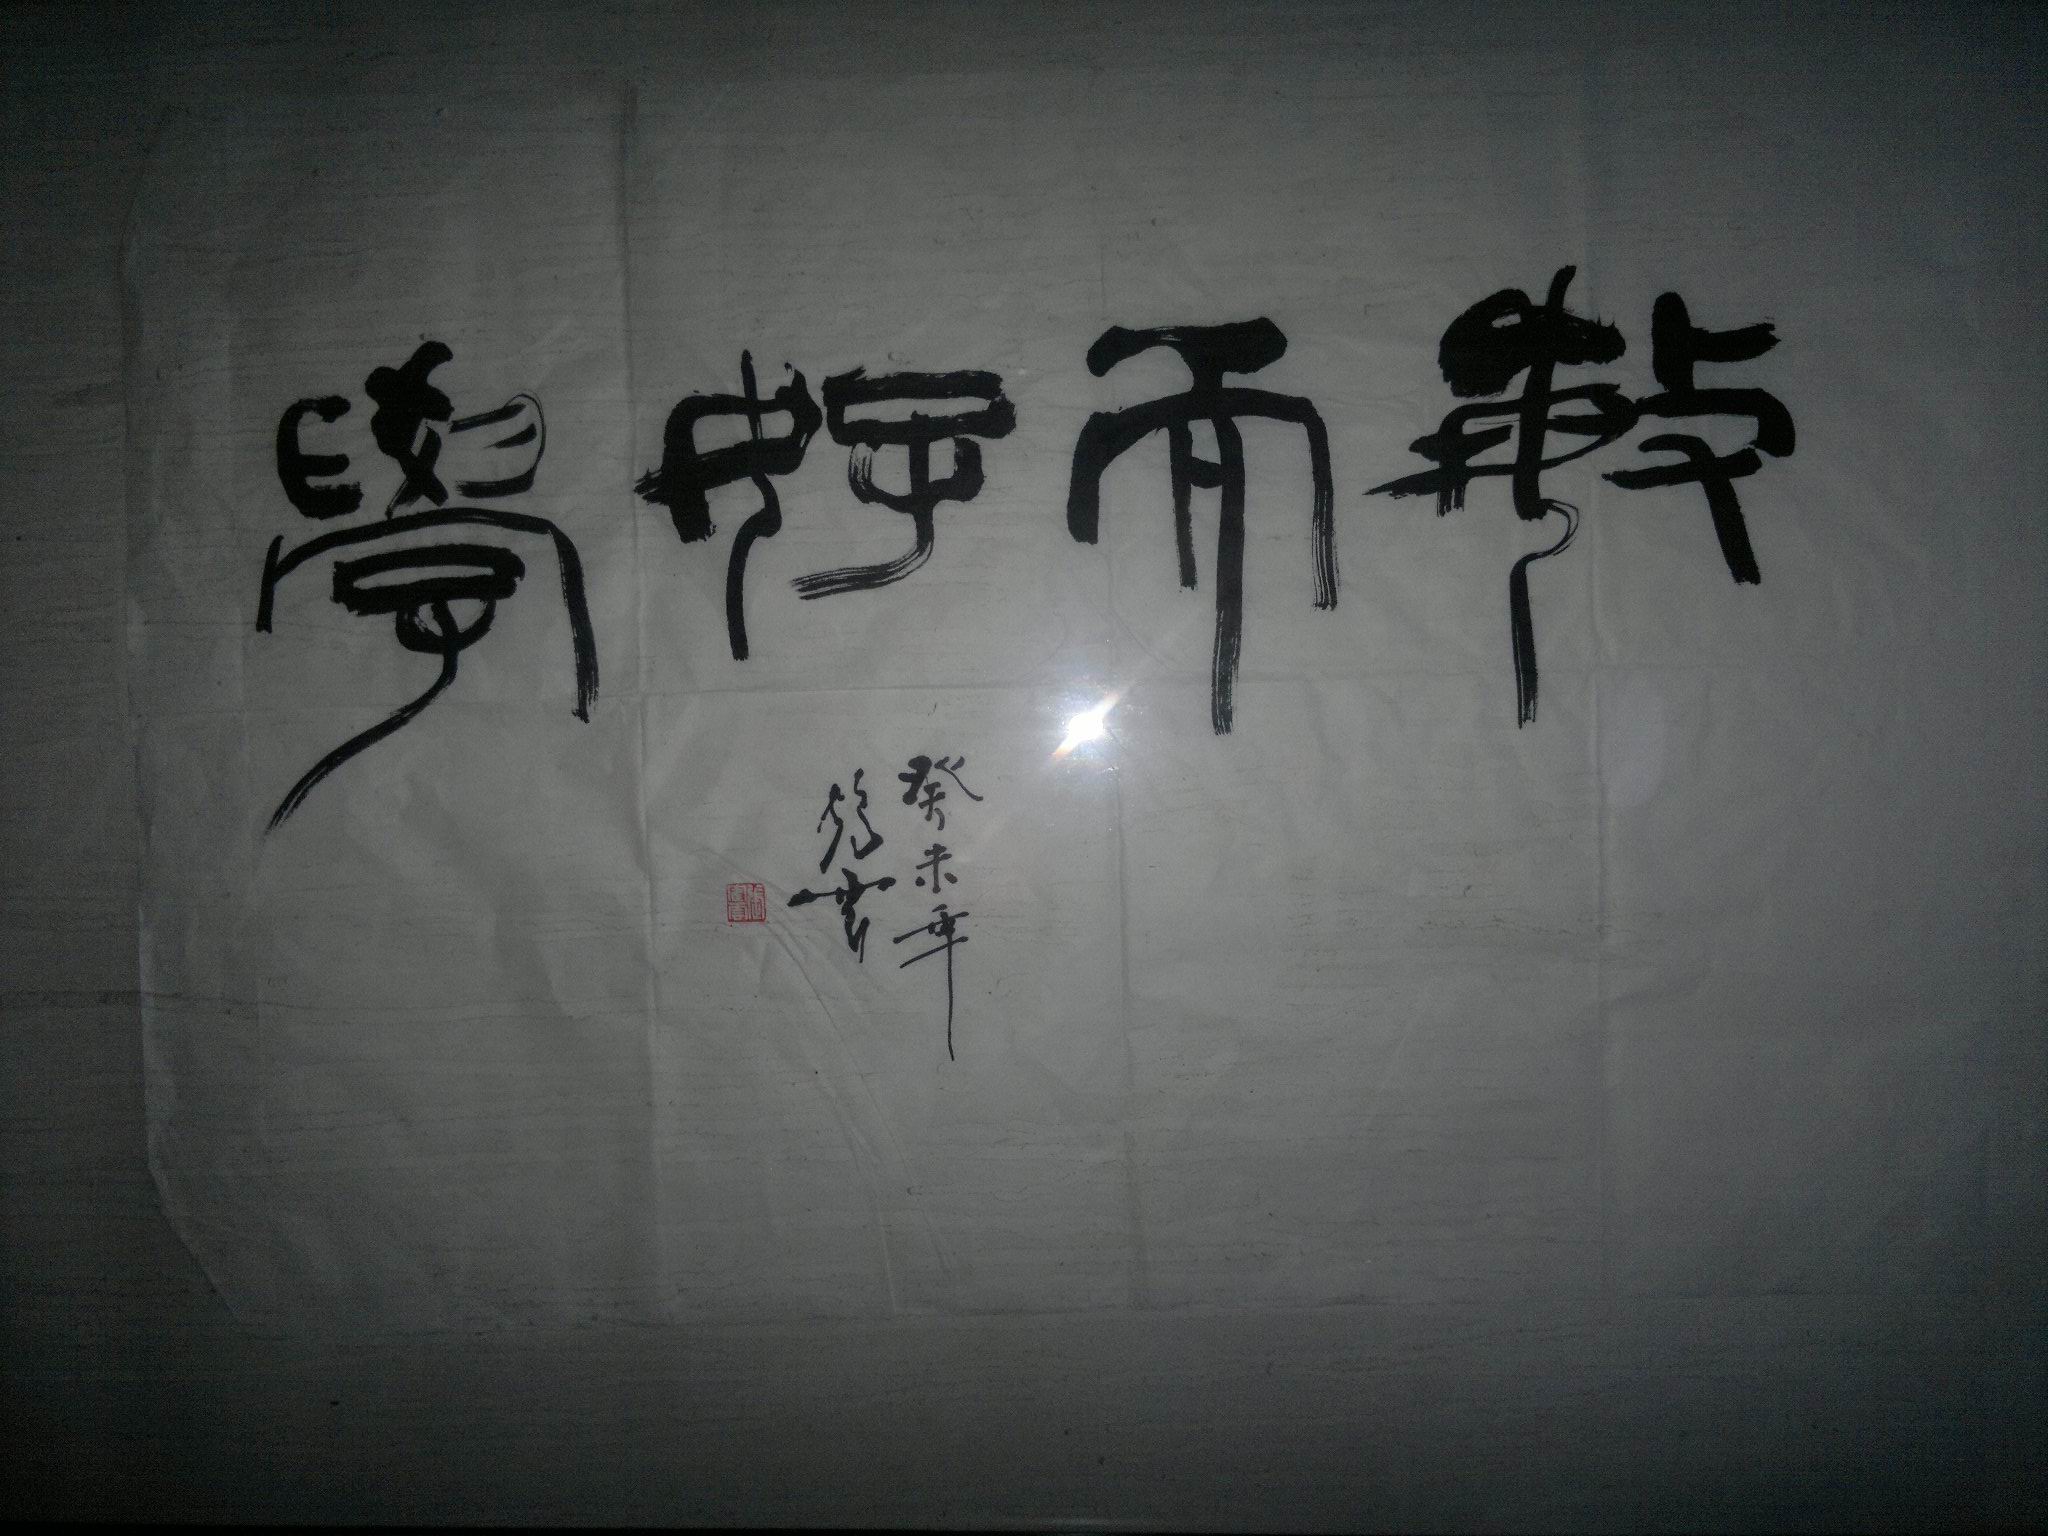 敏而好學
癸未年